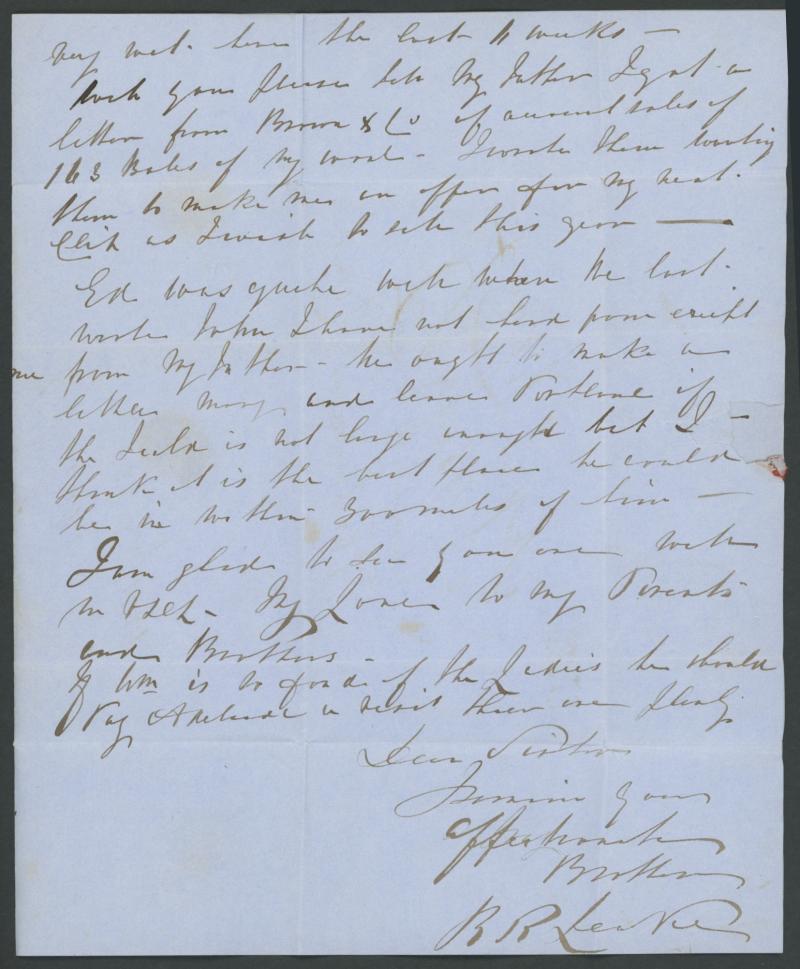 very wet here the last 11 weeks —
Will you please tell My Father I got a
letter from Brown & Co of account sales of
163 Bales of my wool - I wrote them wanting
them to make me an offer for my next
Clip as I wish to sell this year —
Ed was quite well when he last
wrote John I have not heard from except
from My Father - he ought to make a
letter and leave Portland if
the field is not large enough but I -
think it is the best place he could
be in within 300 miles of him —
I am glad to see you are well
in V.D.L. My Love to my Parents
and Brothers -
If Wm is so fond of the Ladies he should
Pay Adelaide a visit there are plenty
Dear Sister
Remain your
affectionate
Brother
R R Leake